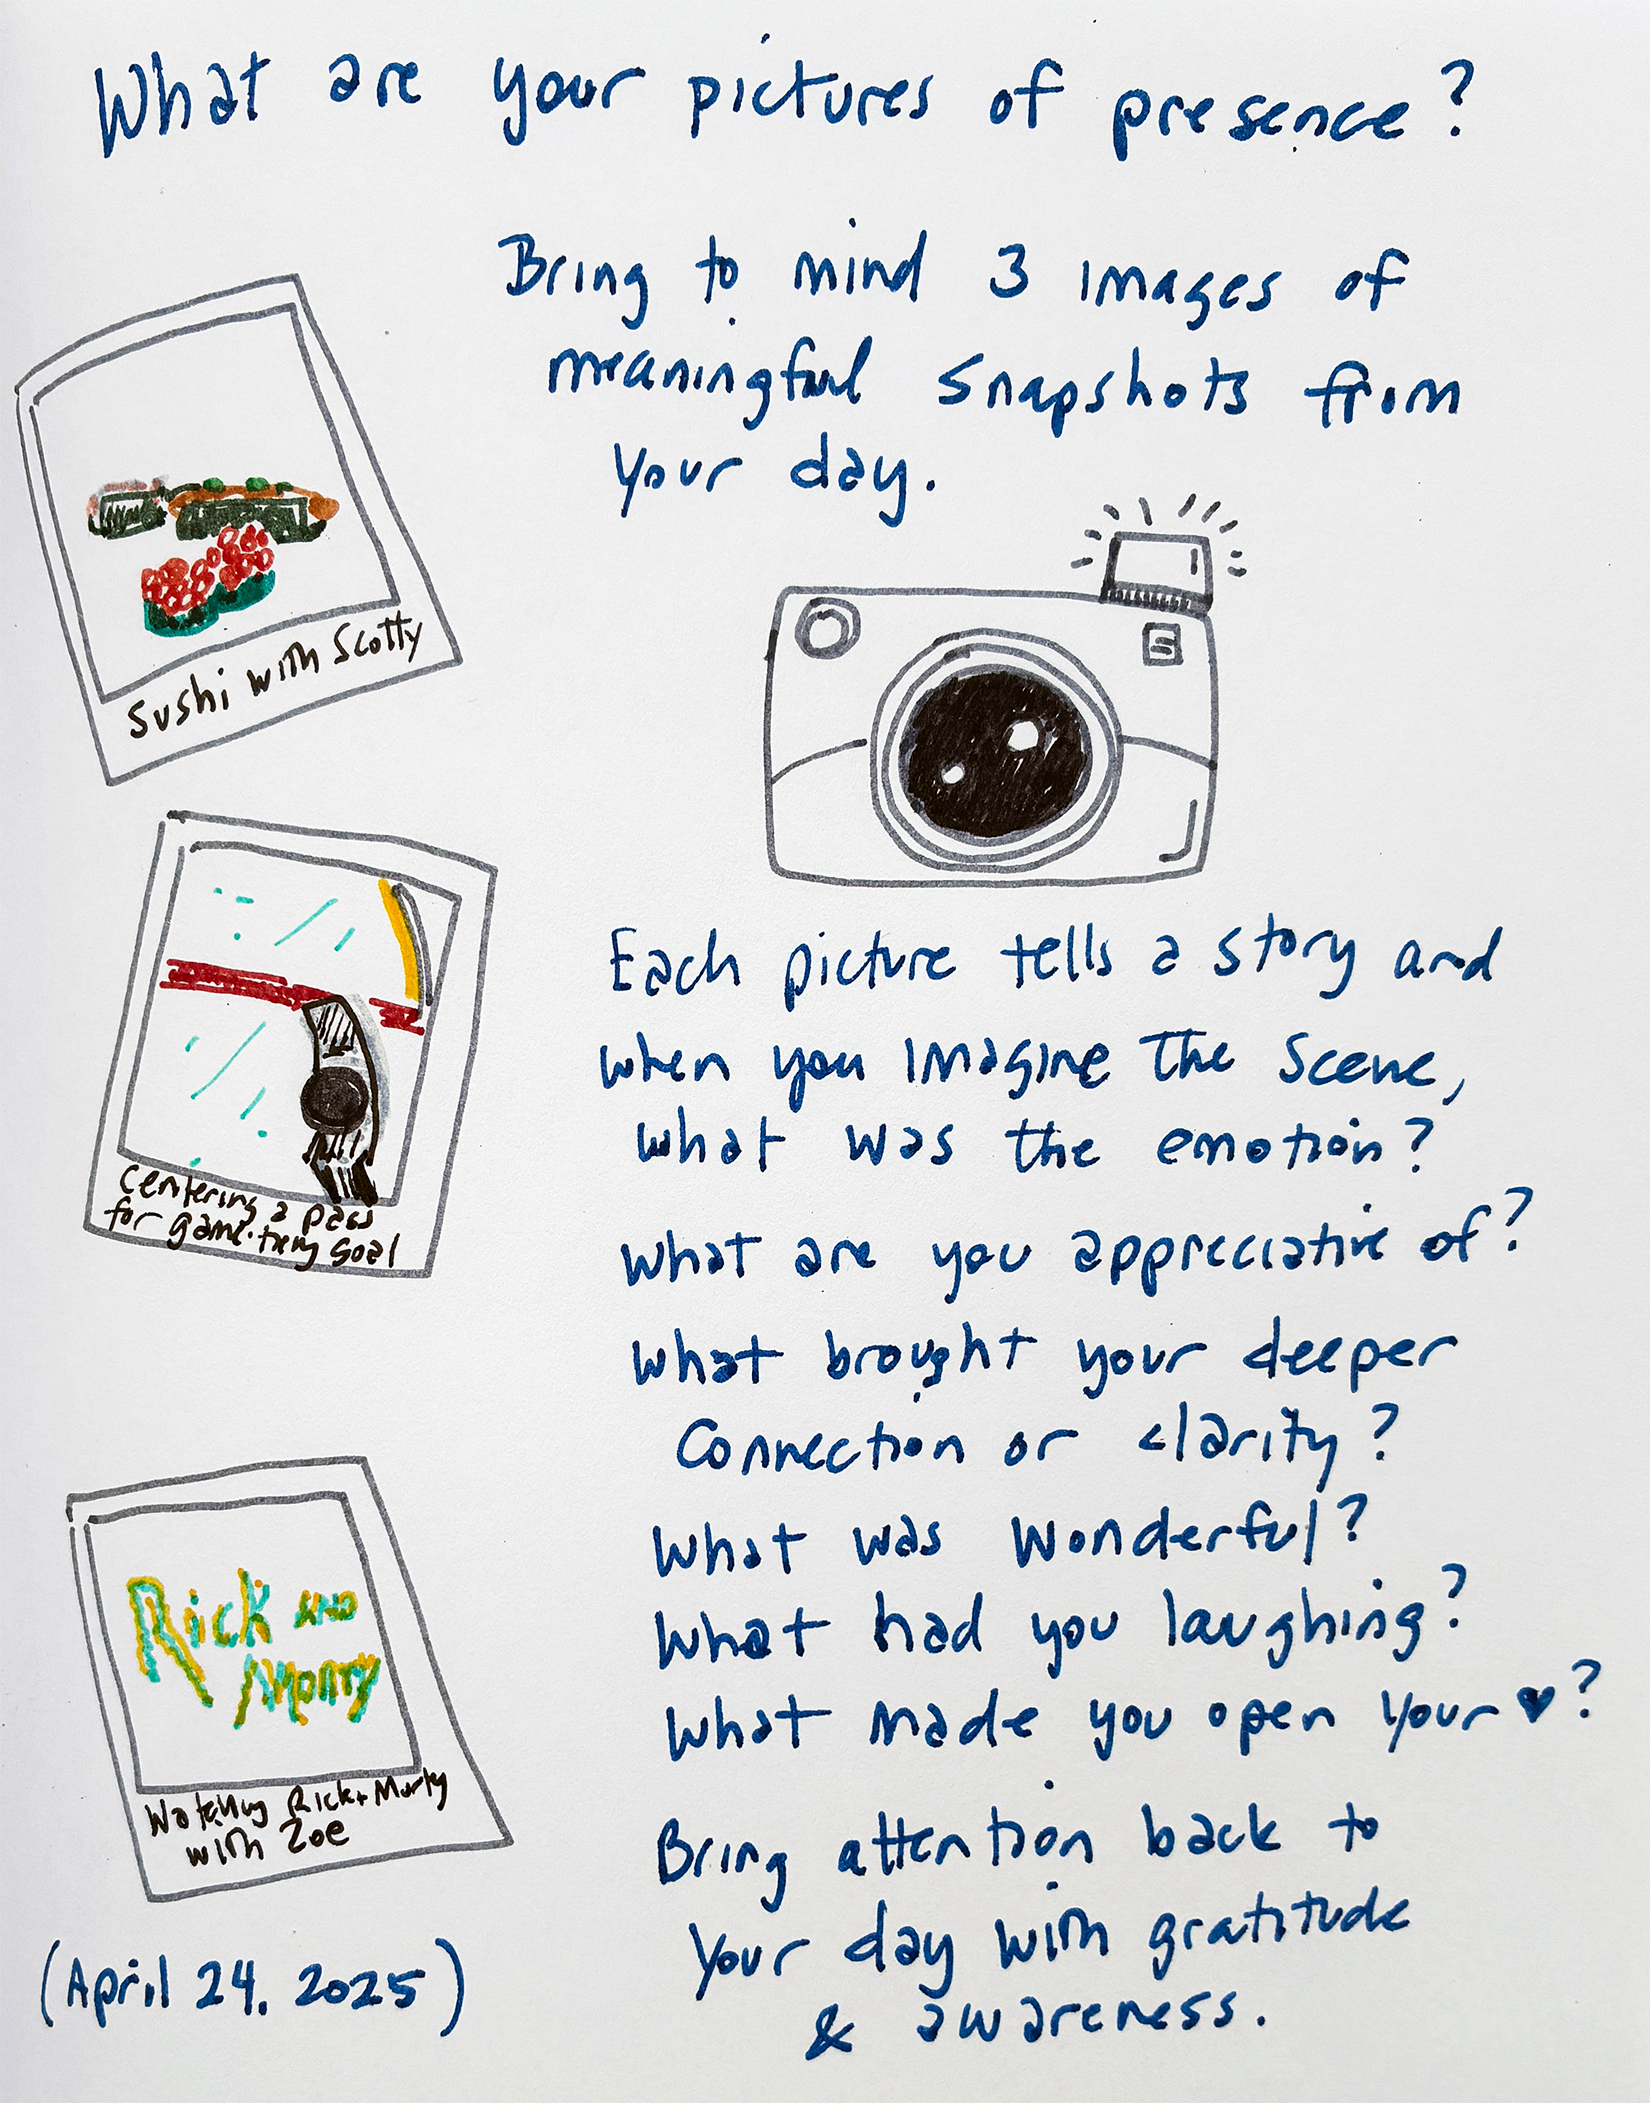 What are your pictures of presence?
Bring to mind 3 images of
meaningful snapshots from
your day.
Sushi with Scotty
Centering a pass
for game-tieing goal
Rick AND
Morty
Watching Rick + Morty
with Zoe
(April 24, 2025)
Each picture tells a story and
when you imagine the scene,
what was the emotion?
What are you appreciative of?
What brought your deeper
connection or clarity?
What was wonderful?
What had you laughing?
What made you open your ♥?
Bring attention back to
your day with gratitude
& awareness.